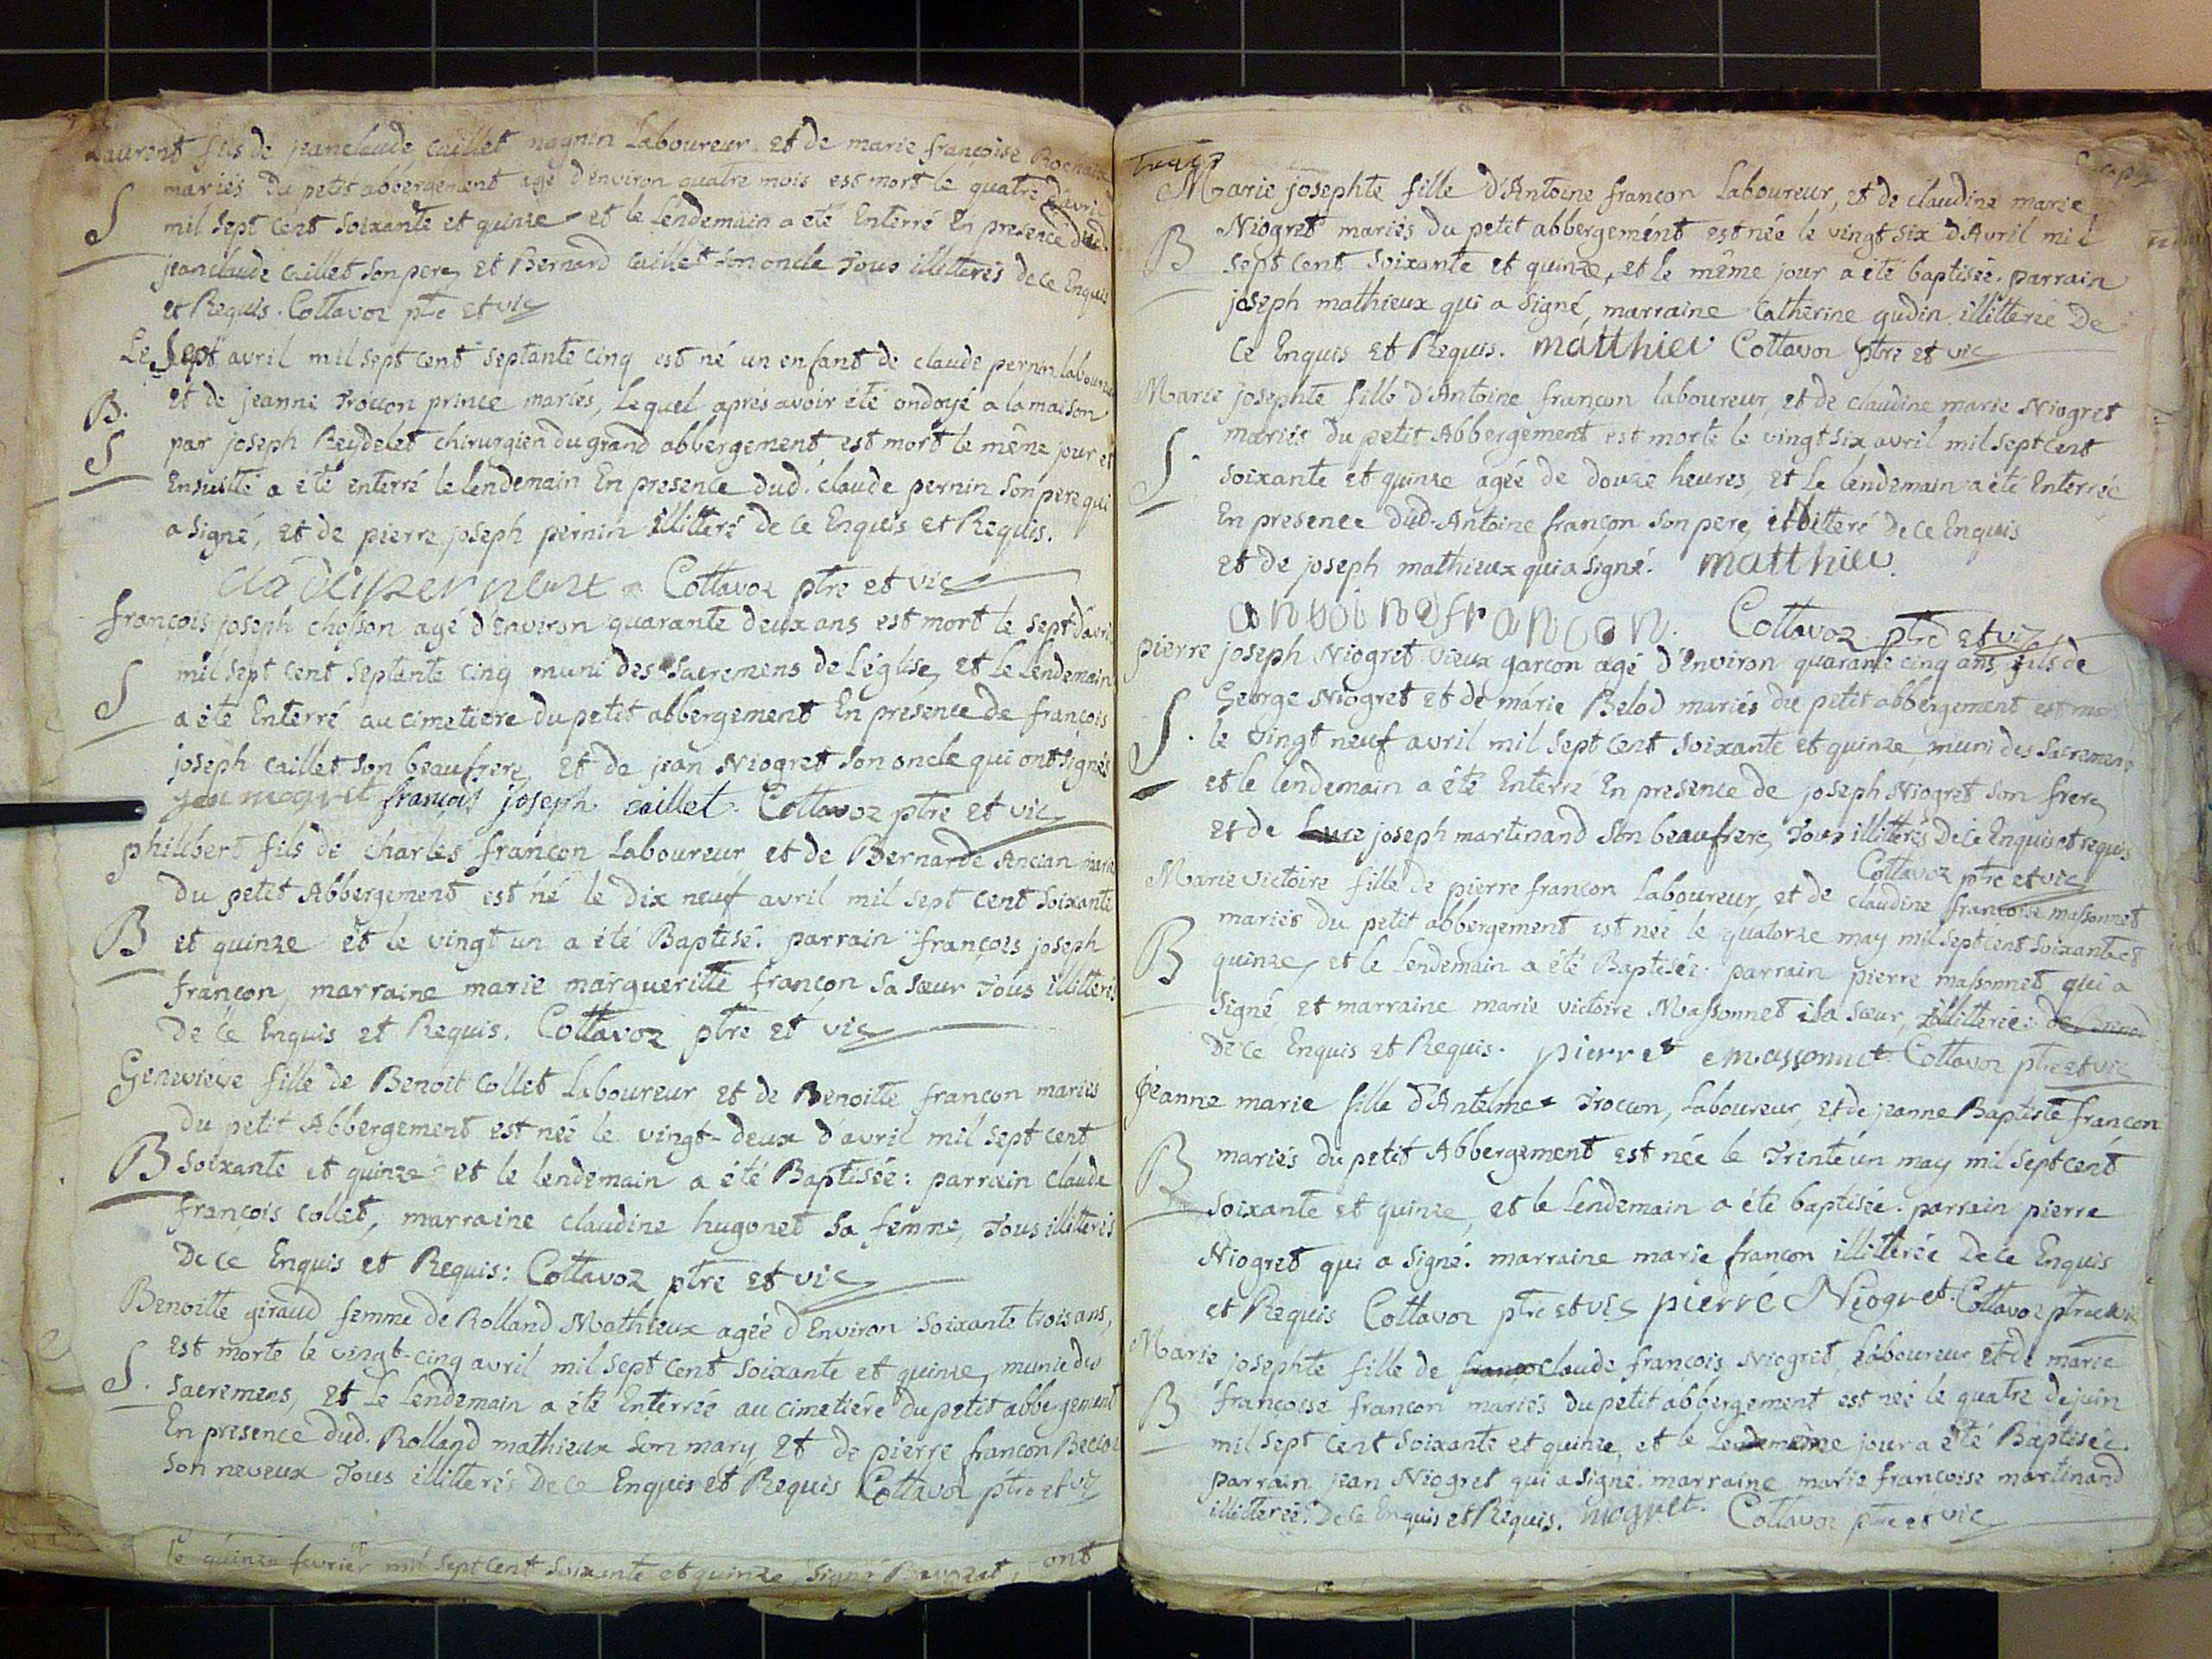 Laurent fils de jeanclaude caillet magnin Laboureur et de marie françoise
mariés du petit abbergement agé d'environ quatre mois est mort le quatre d'avril
S mil sept cent soixante et quinze et le Lendemain a eté Enterré En presence dud.
jeanclaude caillet son pere, et Bernard caillet son oncle Tous illitterés de ce Enquis
et Requis. Cottavoz ptre et vic
Le sept avril mil sept cent septante cinq est né un enfant de claude pernin laboureur
B. et de jeanne Troccon prince mariés, Lequel après avoir été ondoyé a la maison
S par joseph Reydelet chirurgien du grand abbergement est mort le même jour et
Ensuitte a été enterré le lendemain En presence dud. claude pernin son pere qui
a signé, et de pierre joseph pernin illitteré de ce Enquis et Requis.
Cottavoz ptre et vic
françois joseph chosson agé d'environ quarante deux ans est mort le sept d'avril
S mil sept cent septante cinq muni des sacremens de L'église, et le Lendemain
a été Enterré au cimetière du petit abbergement En présence de françois
joseph caillet son beaufrere, et de jean Niogret son oncle qui ont signés
françois joseph caillet. Cottavoz ptre et vic
philibert fils de charles françon Laboureur et de Bernarde Ancian mariés
du petit Abbergement est né le dix neuf avril mil sept cent soixante
B et quinze et le vingt un a été Baptisé. parrain françois joseph
françon, marraine marie margueritte françon sa sœur Tous illitterés
de ce Enquis et Requis. Cottavoz ptre et vic
Genevieve fille de Benoit collet Laboureur et de Benoitte françon mariés
du petit Abbergement est née le vingt-deux d'avril mil sept cent
B soixante et quinze et le lendemain a été Baptisée: parrain claude
françois collet, marraine claudine hugonet sa femme, Tous illitterés
De ce Enquis et Requis: Cottavoz ptre et vic
Benoitte giraud femme de Rolland Mathieux agée d'Environ soixante trois ans,
est morte le vingt-cinq avril mil sept cent soixante et quinze, munie des
S. sacremens, et Le Lendemain a été Enterrée au cimetière du petit abbergement
En presence dud. Rolland mathieux son mary et de pierre françon
son neveux Tous illitterés De ce Enquis et Requis Cottavoz ptre et vic
le quinze fevrier mil sept cent soixante et quinze, signé ont
Marie josephte fille d'Antoine françon Laboureur, et de claudine marie
Niogret mariés du petit abbergement est née le vingt six d'Avril mil
B sept cent soixante et quinze, et le même jour a été baptisée. parrain
joseph mathieux qui a signé, marraine catherine gudin illitterée De
Ce Enquis et Requis. matthieu Cottavoz ptre et vic
Marie josephte fille d'Antoine françon laboureur, et de claudine marie Niogret
mariés du petit Abbergement est morte le vingt six avril mil sept cent
S. soixante et quinze agée de douze heures, et Le lendemain a été Enterrée
En presence dud. Antoine françon son pere, illitteré de ce Enquis
et de joseph mathieux qui a signé. matthieu.
antoine francon. Cottavoz ptre et vic
pierre joseph Niogret vieux garçon agé d'Environ quarante cinq ans, fils de
George Niogret et de marie Belod mariés du petit abbergement est mort
S. le vingt neuf avril mil sept cent soixante et quinze, muni des sacremens
et le lendemain a été Enterré En presence de joseph Niogret son frere,
et de joseph martinand son beaufrere, Tous illitterés De ce Enquis et requis
Cottavoz ptre et vic
Marie victoire fille de pierre françon Laboureur, et de claudine françoise massonnet
mariés du petit abbergement est née le quatorze may mil sept cent soixante et
B quinze, et le Lendemain a été Baptisée. parrain pierre massonnet qui a
signé et marraine marie victoire Massonnet sa sœur, illitterée
De ce Enquis et Requis. pierre massonnet Cottavoz ptre et vic
Jeanne marie fille d'Antelme Troccon, Laboureur, et de jeanne Baptiste françon
B mariés du petit Abbergement est née le Trente un may mil sept cent
soixante et quinze, et le Lendemain a été baptisée. parrain pierre
Niogret qui a signé. marraine marie françon illitterée De ce Enquis
et Requis Cottavoz ptre et vic pierre Niogret Cottavoz ptre et vic
Marie josephte fille de claude françois Niogret, Laboureur et de marie
B françoise françon mariés du petit abbergement est née le quatre de juin
mil sept cent soixante et quinze, et le même jour a été Baptisée.
parrain jean Niogret qui a signé. marraine marie françoise martinand
illitterée. De ce Enquis et Requis. niogret. Cottavoz ptre et vic